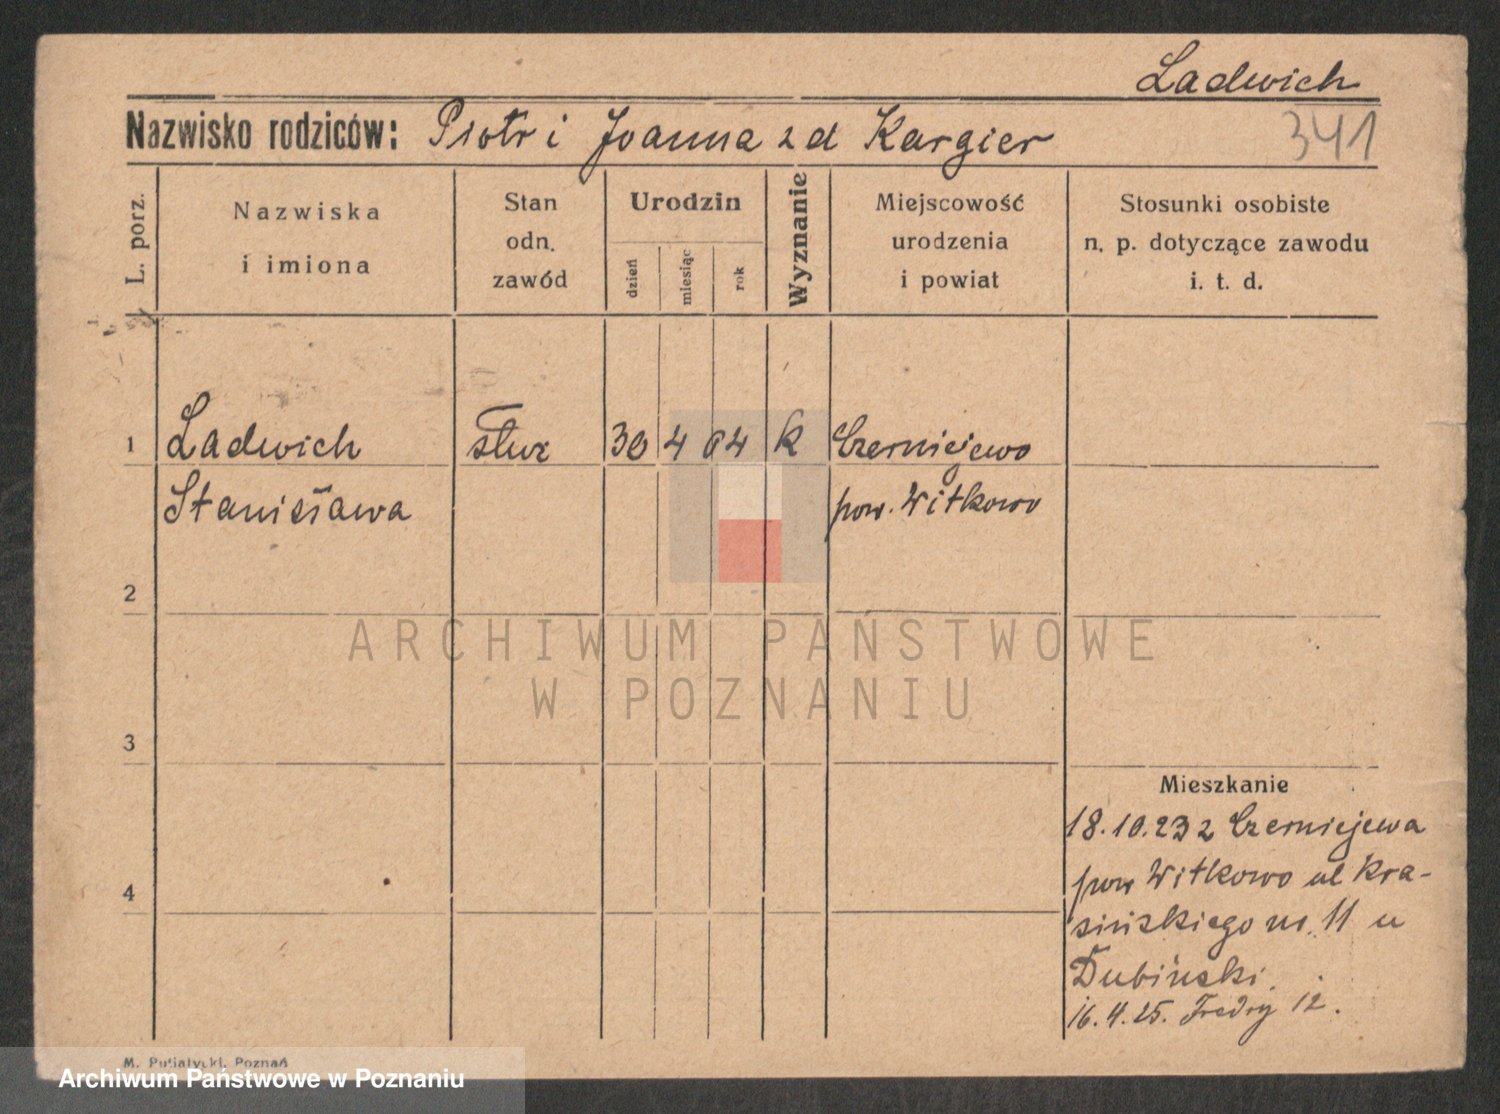 Ladwich
Nazwisko rodziców: Piotr i Joanna z d Kargier
341
L. porz.
Nazwiska
i imiona
Stan
odn.
zawód
Urodzin
dzień
miesiąc
rok
Wyznanie
Miejscowość
urodzenia
i powiat
Stosunki osobiste
n. p. dotyczące zawodu
i. t. d.
1 Ladwich służ 30 4 04 k Czerniejewo
Stanisława pow. Witkowo
2
3
4
Mieszkanie
18.10.23 z Czerniejewa
pow Witkowo ul Kra-
sińskiego no. 11 u
Dubiński.
16.4.25. Fredry 12.
ARCHIWUM PAŃSTWOWE
W POZNANIU
M. Putiatycki, Poznań
Archiwum Państwowe w Poznaniu